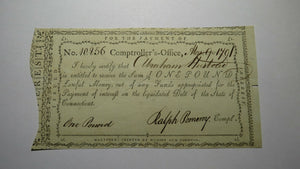 FOR THE PAYMENT OF
No. 10956 Comptroller's-Office, 1791
I hereby certify that Abraham
is entitled to receive the Sum of ONE POUND
Lawful Money, out of any Funds appropriated for the
Payment of Interest on the liquidated Debt of the State of
Connecticut.
One Pound Ralph Pomeroy Compt.